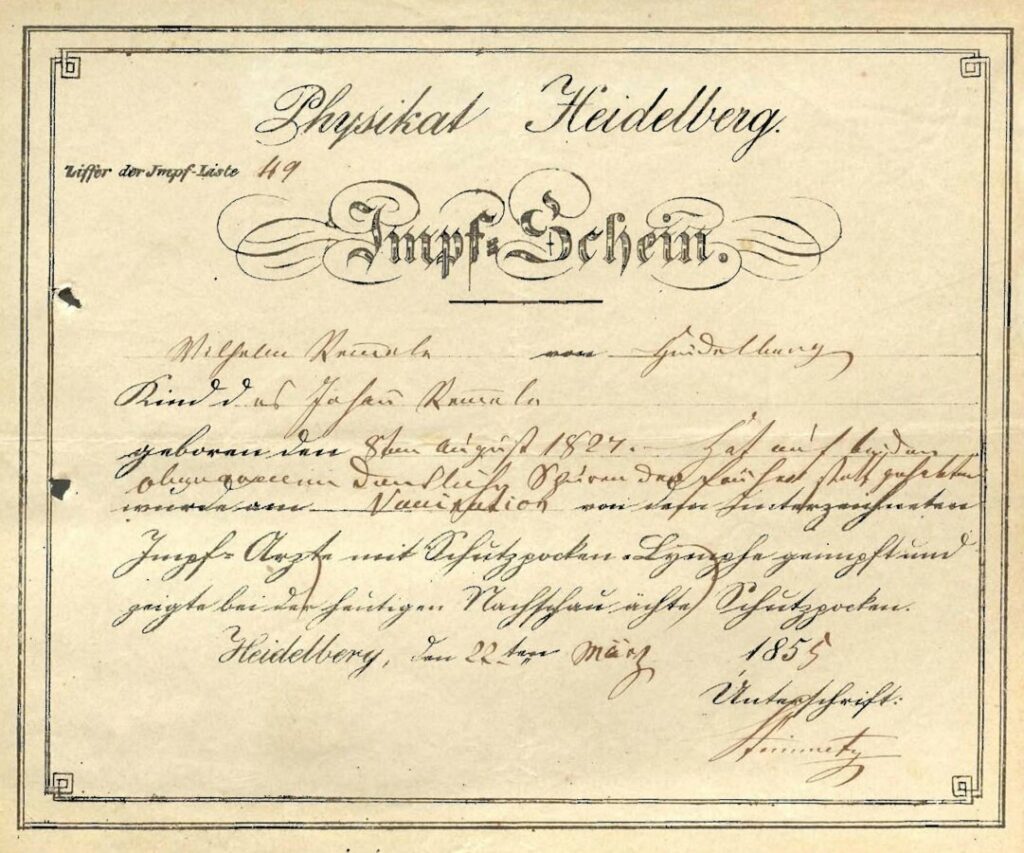 Physikat Heidelberg.
Ziffer der Impf-Liste 49
Impf-Schein.
Wilhelm Remmele von Heidelberg
Kind des Johann Remmele
geboren den 8ten August 1827. - Hat auf beiden
deutliche Spuren der früher statt gehabten
wurde am Vaccination von dem unterzeichneten
Impf-Arzte mit Schutzpocken-Lymphe geimpft und
zeigte bei der heutigen Nachschau ächte Schutzpocken.
Heidelberg, den 22ten März 1855
Unterschrift:
Steinmetz